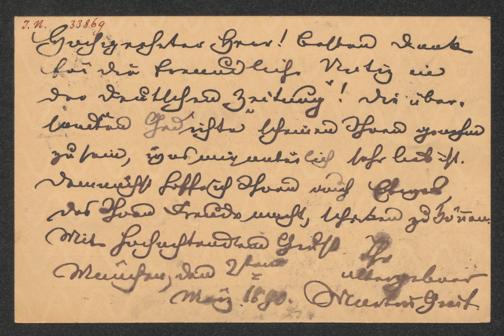 I. N. 33869
Hochgeehrter Herr! besten Dank
für die freundliche Notiz in
der Deutschen Zeitung"! Die über-
sandten Gedichte scheinen Ihnen genehm
zu sein, was mir natürlich sehr lieb ist.
Demnächst hoffe ich Ihnen noch Etwas
das Ihnen Freude macht, schicken zu können.
Mit hochachtendem Gruß Ihr
München, den 2ten ergebener
März 1880. Martin Greif